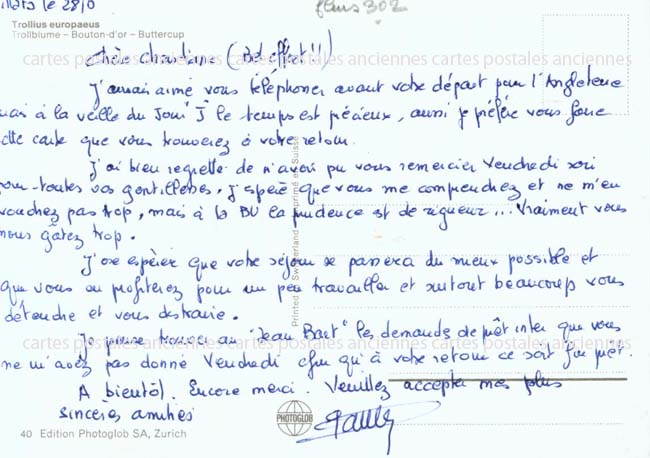 le 28/0
fleurs 302
Trollius europaeus
Trollblume – Bouton-d'or – Buttercup
cartes postales anciennes cartes postales anciennes
Chère Christiane (Bel effort!!)
J'aurais aimé vous téléphoner avant votre départ pour l'Angleterre
mais à la veille du Jour "J" le temps est précieux, aussi je préfère vous faire
cette carte que vous trouverez à votre retour.
J'ai bien regretté de n'avoir pu vous remercier Vendredi soir
pour toutes vos gentillesses. J'espère que vous me comprendrez et ne m'en
voudrez pas trop, mais à la BU la prudence est de rigueur... Vraiment vous
nous gâtez trop.
J'ose espérer que votre séjour se passera du mieux possible et
que vous en profiterez pour un peu travailler et surtout beaucoup vous
détendre et vous distraire.
Je pense trouver au "Jean Bart" les demandes de prêt inter que vous
cartes postales anciennes cartes postales anciennes
ne m'avez pas donné Vendredi afin qu'à votre retour ce soit fin prêt.
A bientôt. Encore merci. Veuillez accepter mes plus
sincères amitiés
Printed in Switzerland Imprimé en Suisse
PHOTOGLOB
40 Edition Photoglob SA, Zurich